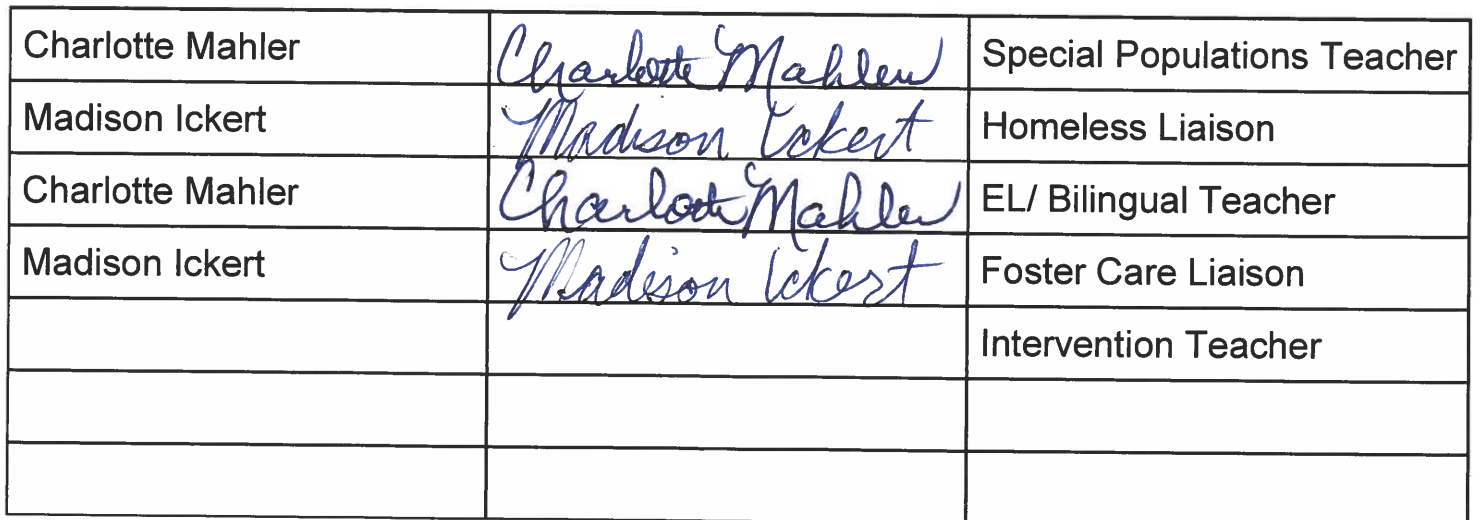 Charlotte Mahler Charlotte Mahler Special Populations Teacher
Madison Ickert Madison Ickert Homeless Liaison
Charlotte Mahler Charlotte Mahler EL/ Bilingual Teacher
Madison Ickert Madison Ickert Foster Care Liaison
Intervention Teacher